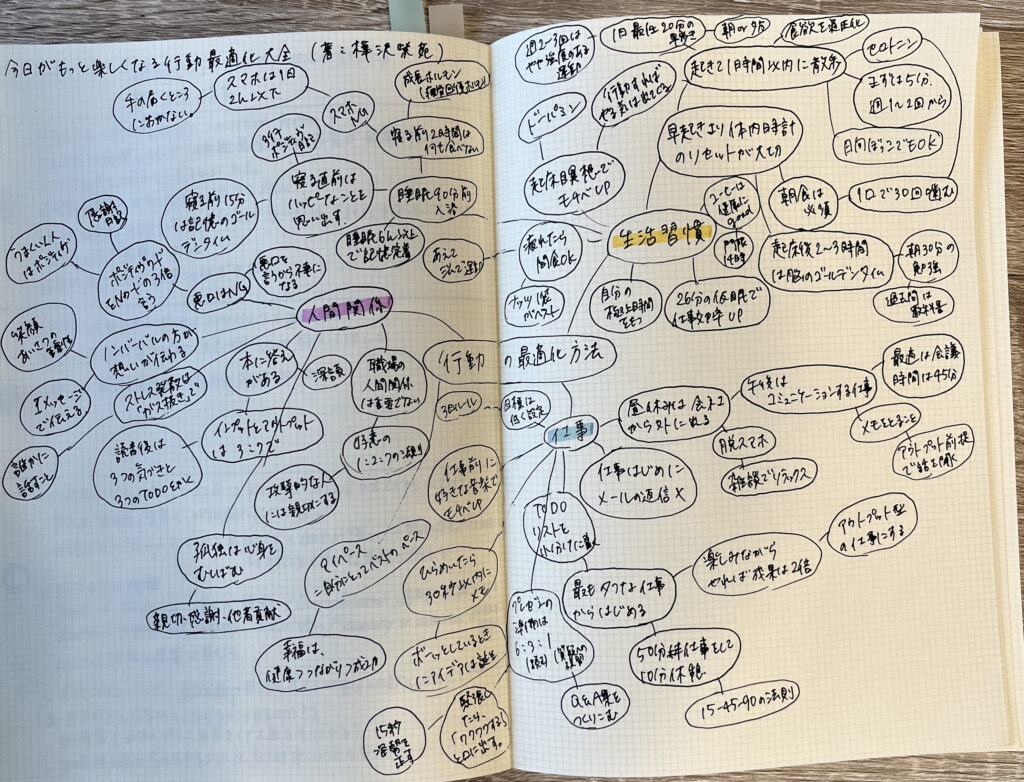 今日がもっと楽しくなる行動最適化大全 (著:樺沢紫苑)
スマホは1日
2h以下
手の届くところ
におかない。
成長ホルモン
スマホ
NG
寝る前2時間は
何も食べない
寝る直前は
ハッピーなことを
思い出す。
睡眠90分前
入浴
寝る前15分
は記憶のゴール
デンタイム
睡眠6h以上
で記憶定着
感謝
日記
うまくいく人
はポジティブ
ポジティブワード
ENDその3倍
言う
悪口はNG
悪口を
言うから不幸に
なる
人間関係
笑顔
あいさつの
重要性
ノンバーバルの方が
想いが伝わる
Iメッセージ
で伝える。
ストレス発散は
「ガス抜き」で
誰かに
話すこと
本に答え
がある
深読
職場の
人間関係
は重要でない
インプットとアウトプット
は3:7で
読書後は
3つの気づきと
3つのTODOをかく
好意の
1:2:7の法則
攻撃的な人
には親切にする
孤独は心身を
むしばむ
親切・感謝・他者貢献
行動の最適化方法
3日ルール
仕事前に
好きな音楽で
モチベUP
マイペース
=自分にとってベストのペース
ひらめいたら
30秒以内に
メモ
幸福は、
健康>つながり>成功
ボーッとしているとき
にアイデアは誕生
緊張し
たら、
「ワクワクする」
と口に出す。
15秒
姿勢を
正す
週2~3回は
やや強度のある
運動
1日最低20分の
早歩き
朝or夕方
食欲を適正化
起きて1時間以内に散歩
セロトニン
まずは5分、
週1~2回から
日向ぼっこでもOK
行動すれば
やる気は出てくる
ドーパミン
早起きより体内時計
のリセットが大切
起床瞑想で
モチベUP
コーヒーは
健康に
good
門限
14時
朝食は
必須
1口で30回噛む
生活習慣
疲れたら
間食OK
ナッツ1袋
がベスト
自分の
極上時間
をもつ
26分の仮眠で
仕事効率UP
起床後2~3時間
は脳のゴールデンタイム
朝30分の
勉強
過去問は
教科書
目標は
低く設定
仕事
昼休みは会社
から外に出る
脱スマホ
雑談でリラックス
午後は
コミュニケーションする仕事
最適は会議
時間は45分
メモをとること
アウトプット前提
で話を聞く
仕事はじめに
メールの返信×
TODO
リストを
小分けに書く
最もタフな仕事
からはじめる
楽しみながら
やれば成果は2倍
アウトプット型
の仕事にする
プレゼンの
準備は
6:3:1
Q&A集を
つくりこむ
50分絆仕事をして
10分休憩
15-45-90の法則